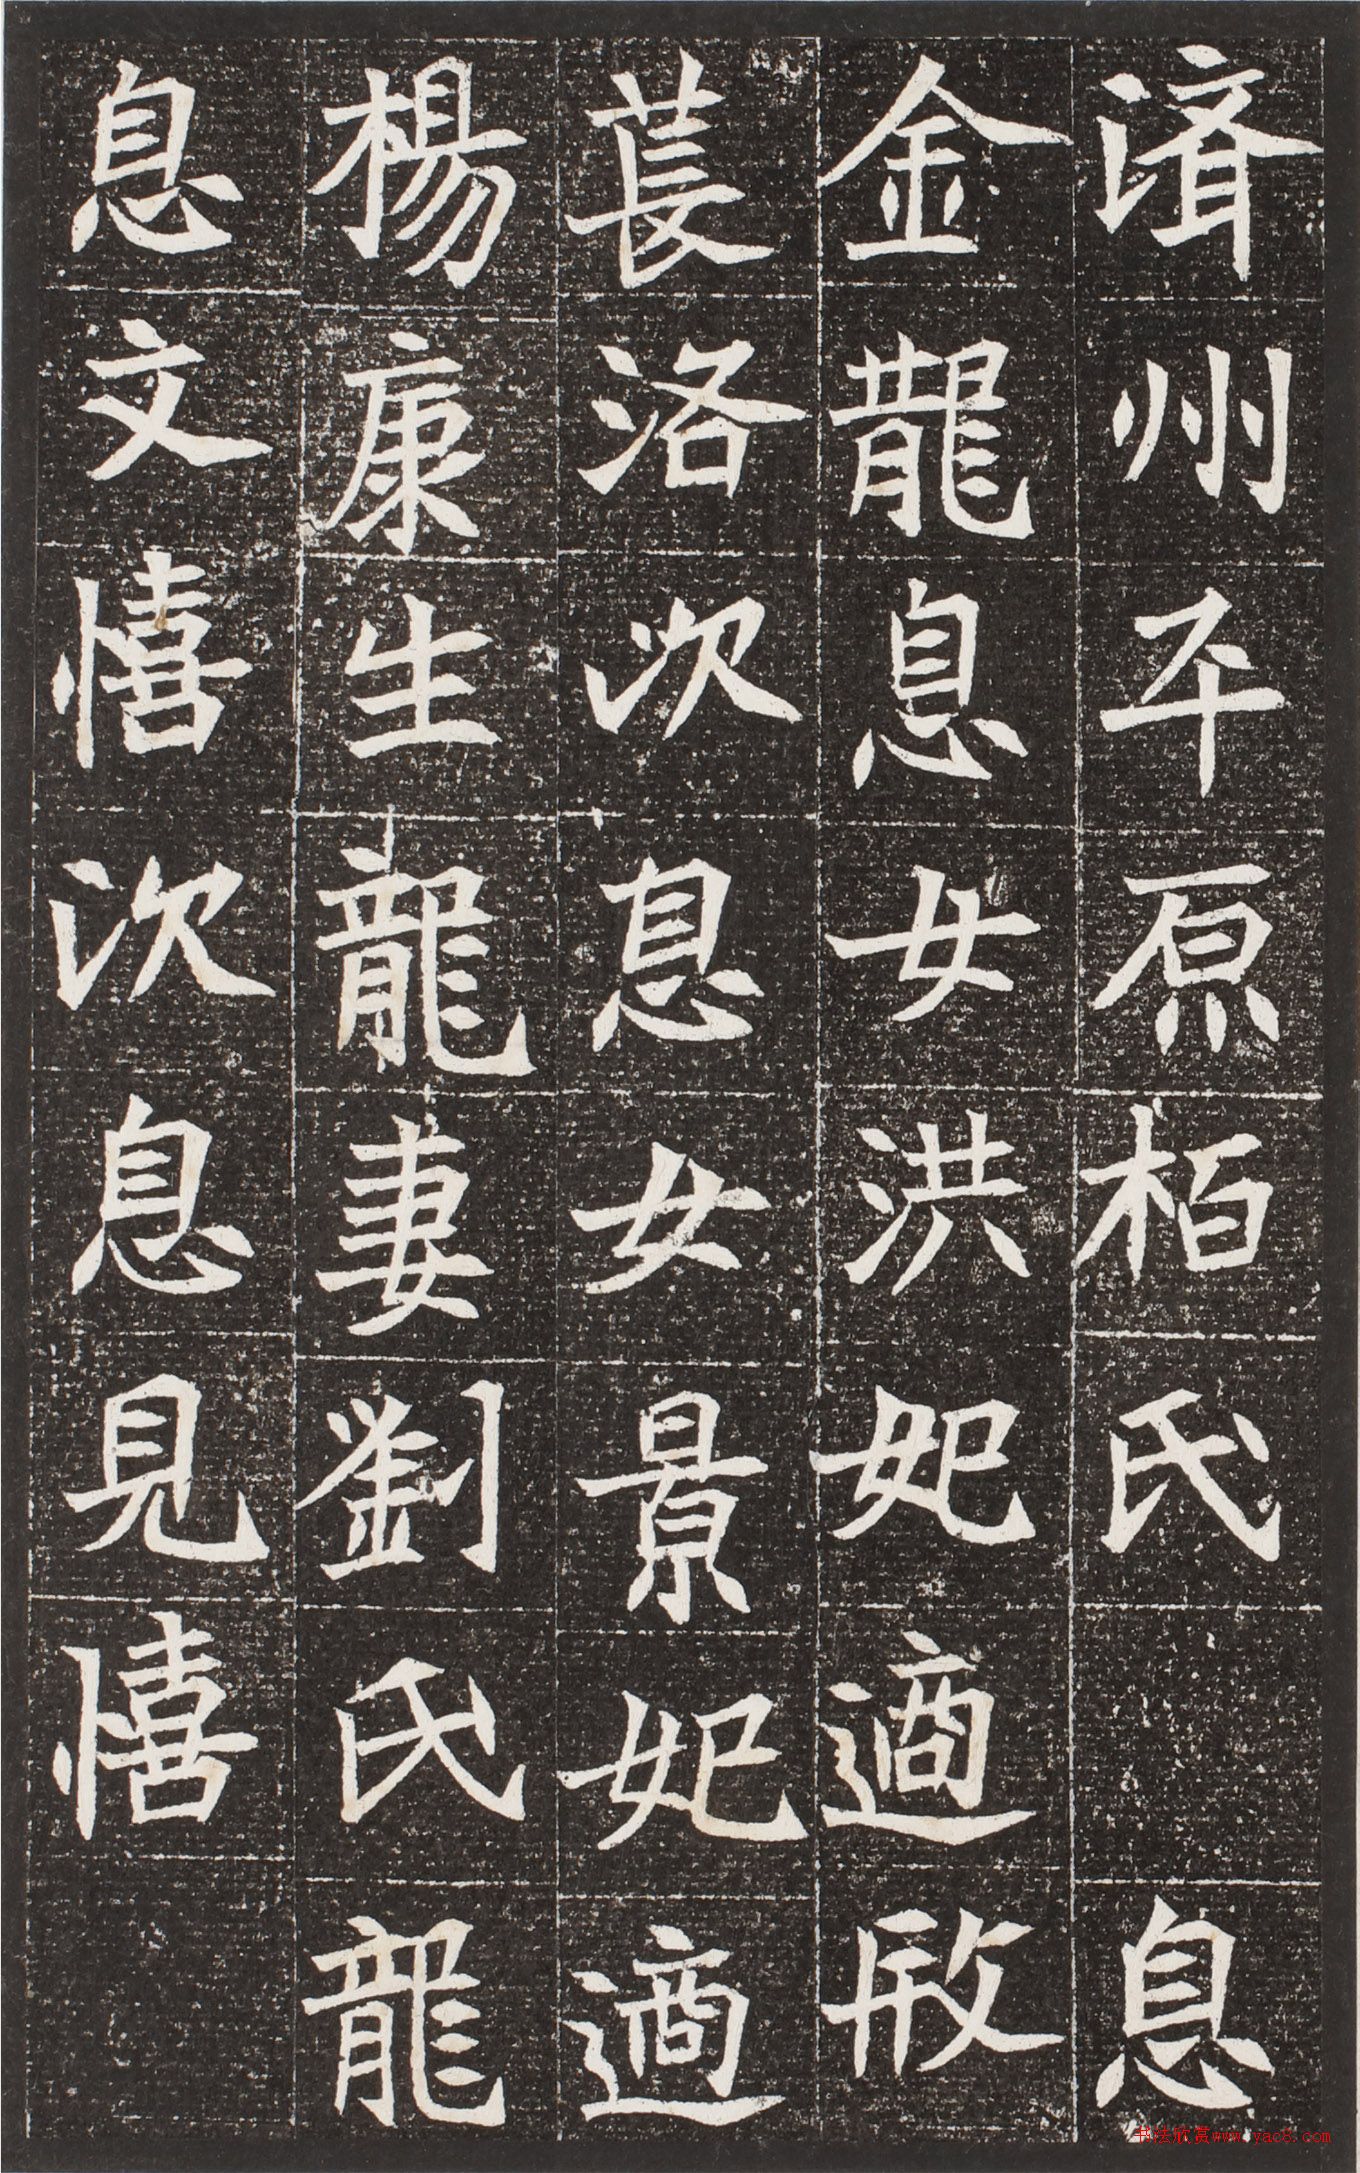 済州平原柏氏　息
金龍息女洪妃適
萇洛次息女景妃適
楊康生龍妻劉氏龍
息文憘次息見憘
书法欣赏www.yac8.com